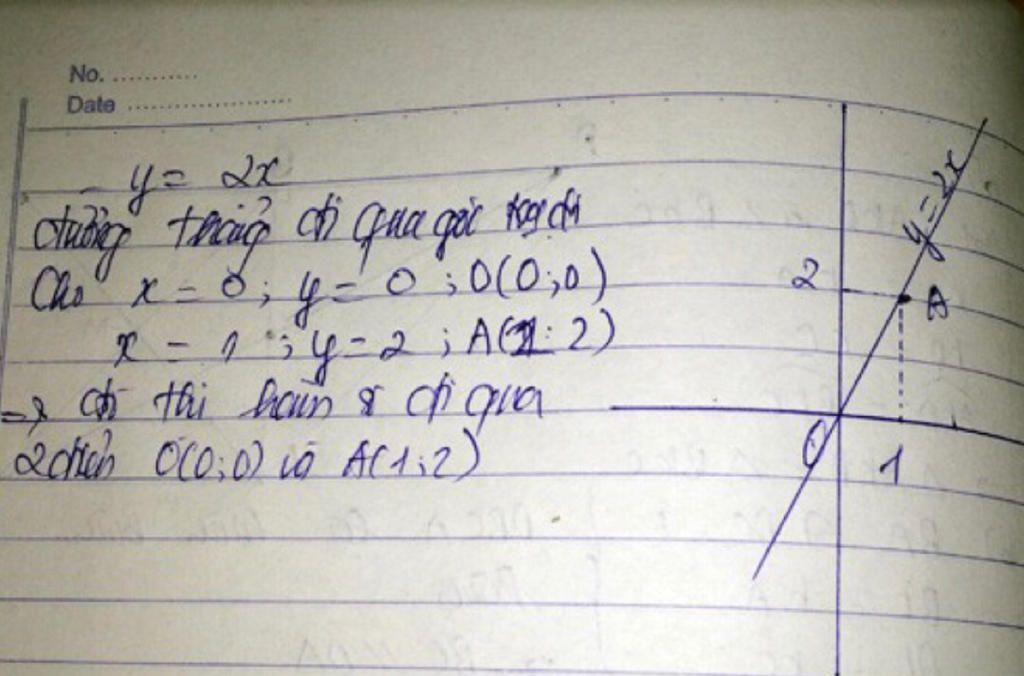 No. ...........
Date ......................
- y = 2x
đường thẳng đi qua gốc tọa độ
Cho x = 0; y = 0; O(0;0)
x = 1; y = 2; A(1:2)
=> đồ thị hàm số đi qua
2 điểm O(0;0) và A(1;2)
y = 2x
2
A
O
1